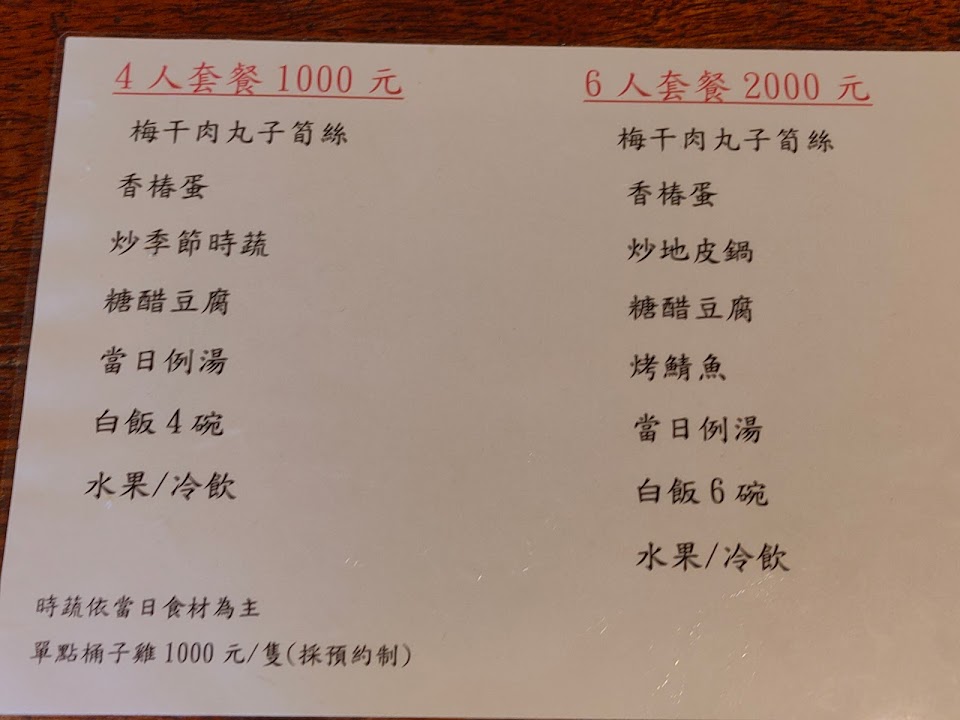 4 人套餐 1000 元
梅干肉丸子筍絲
香椿蛋
炒季節時蔬
糖醋豆腐
當日例湯
白飯 4 碗
水果/冷飲
時蔬依當日食材為主
單點桶子雞 1000 元/隻(採預約制)
6 人套餐 2000 元
梅干肉丸子筍絲
香椿蛋
炒地皮鍋
糖醋豆腐
烤鯖魚
當日例湯
白飯 6 碗
水果/冷飲